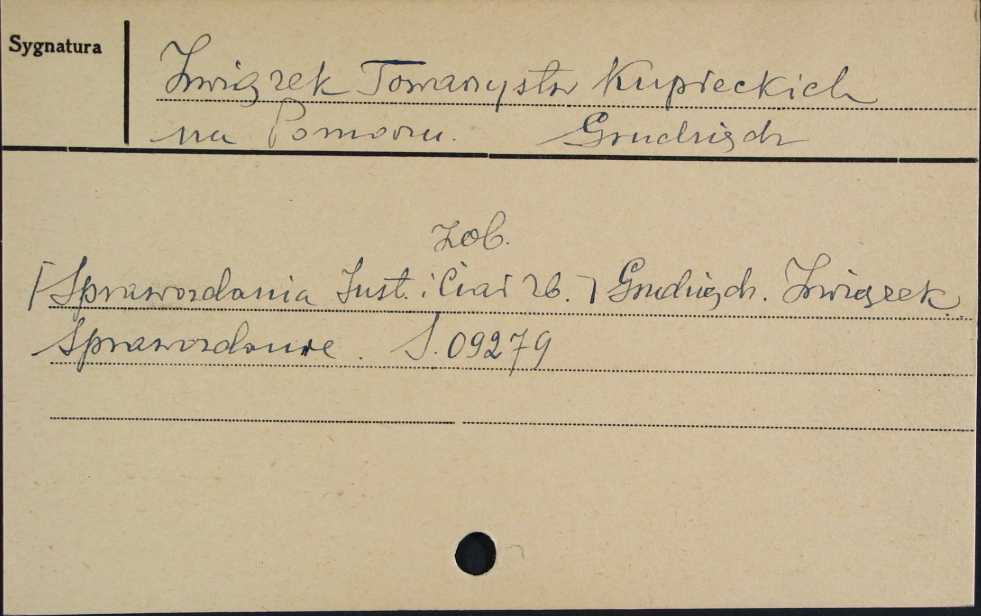 Sygnatura
Związek Towarzystw Kupieckich
na Pomorzu. Grudziądz
zob.
[Sprawozdania Inst. i Ciał zb.] Grudziądz. Związek.
Sprawozdanie. S. 09279